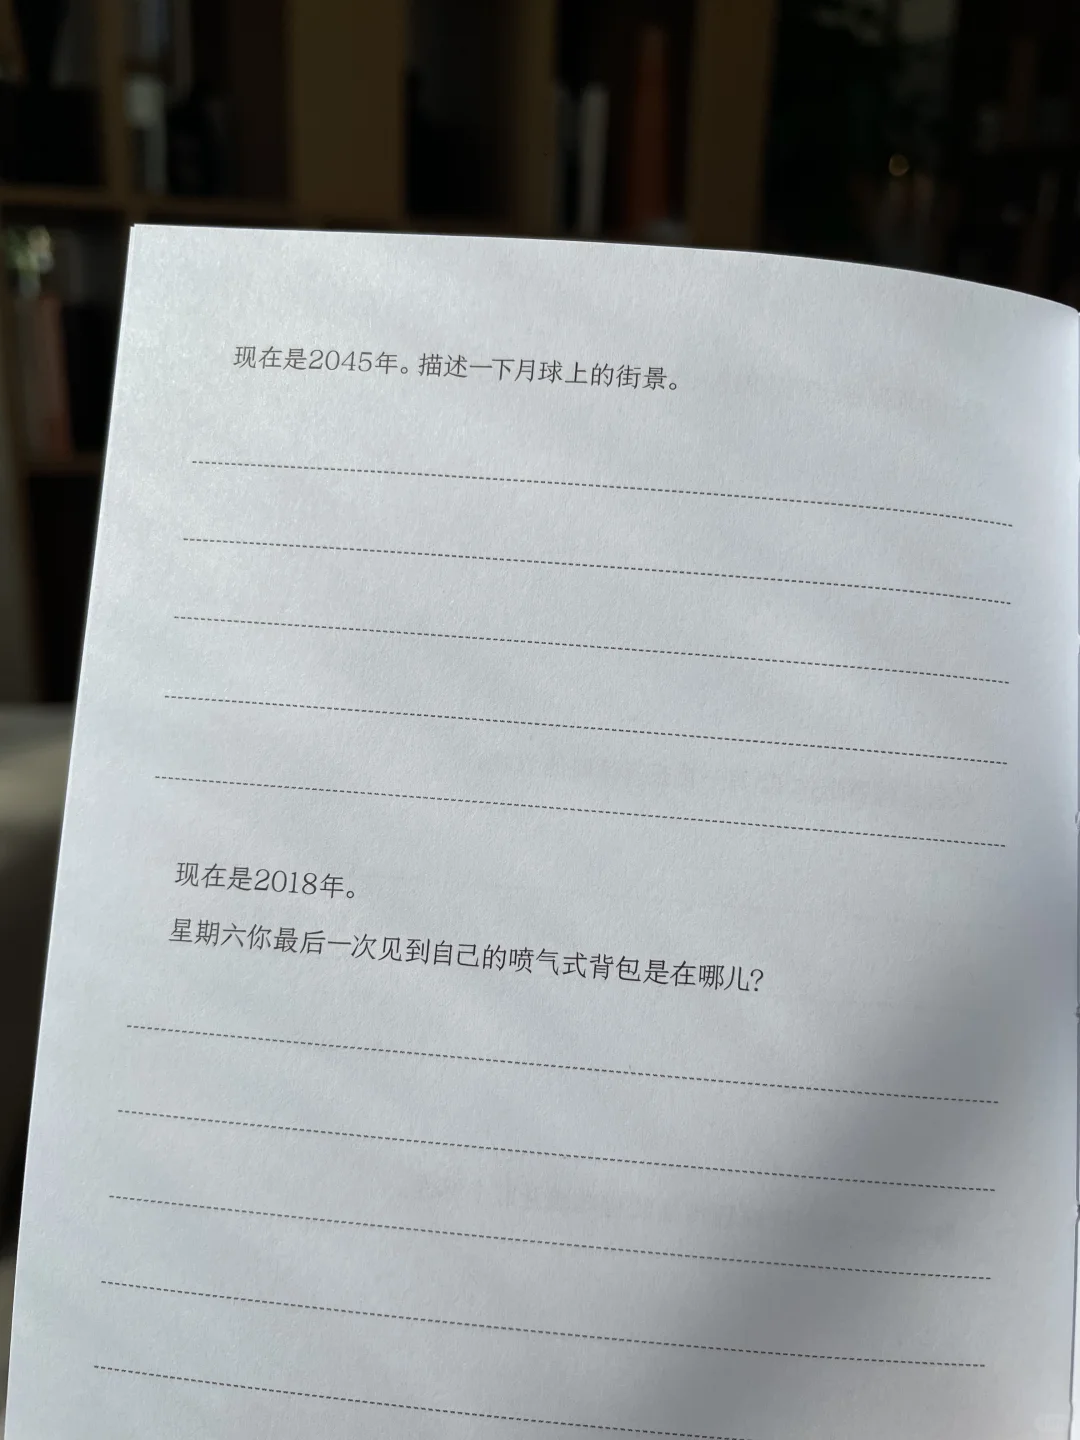 现在是2045年。描述一下月球上的街景。
现在是2018年。
星期六你最后一次见到自己的喷气式背包是在哪儿？